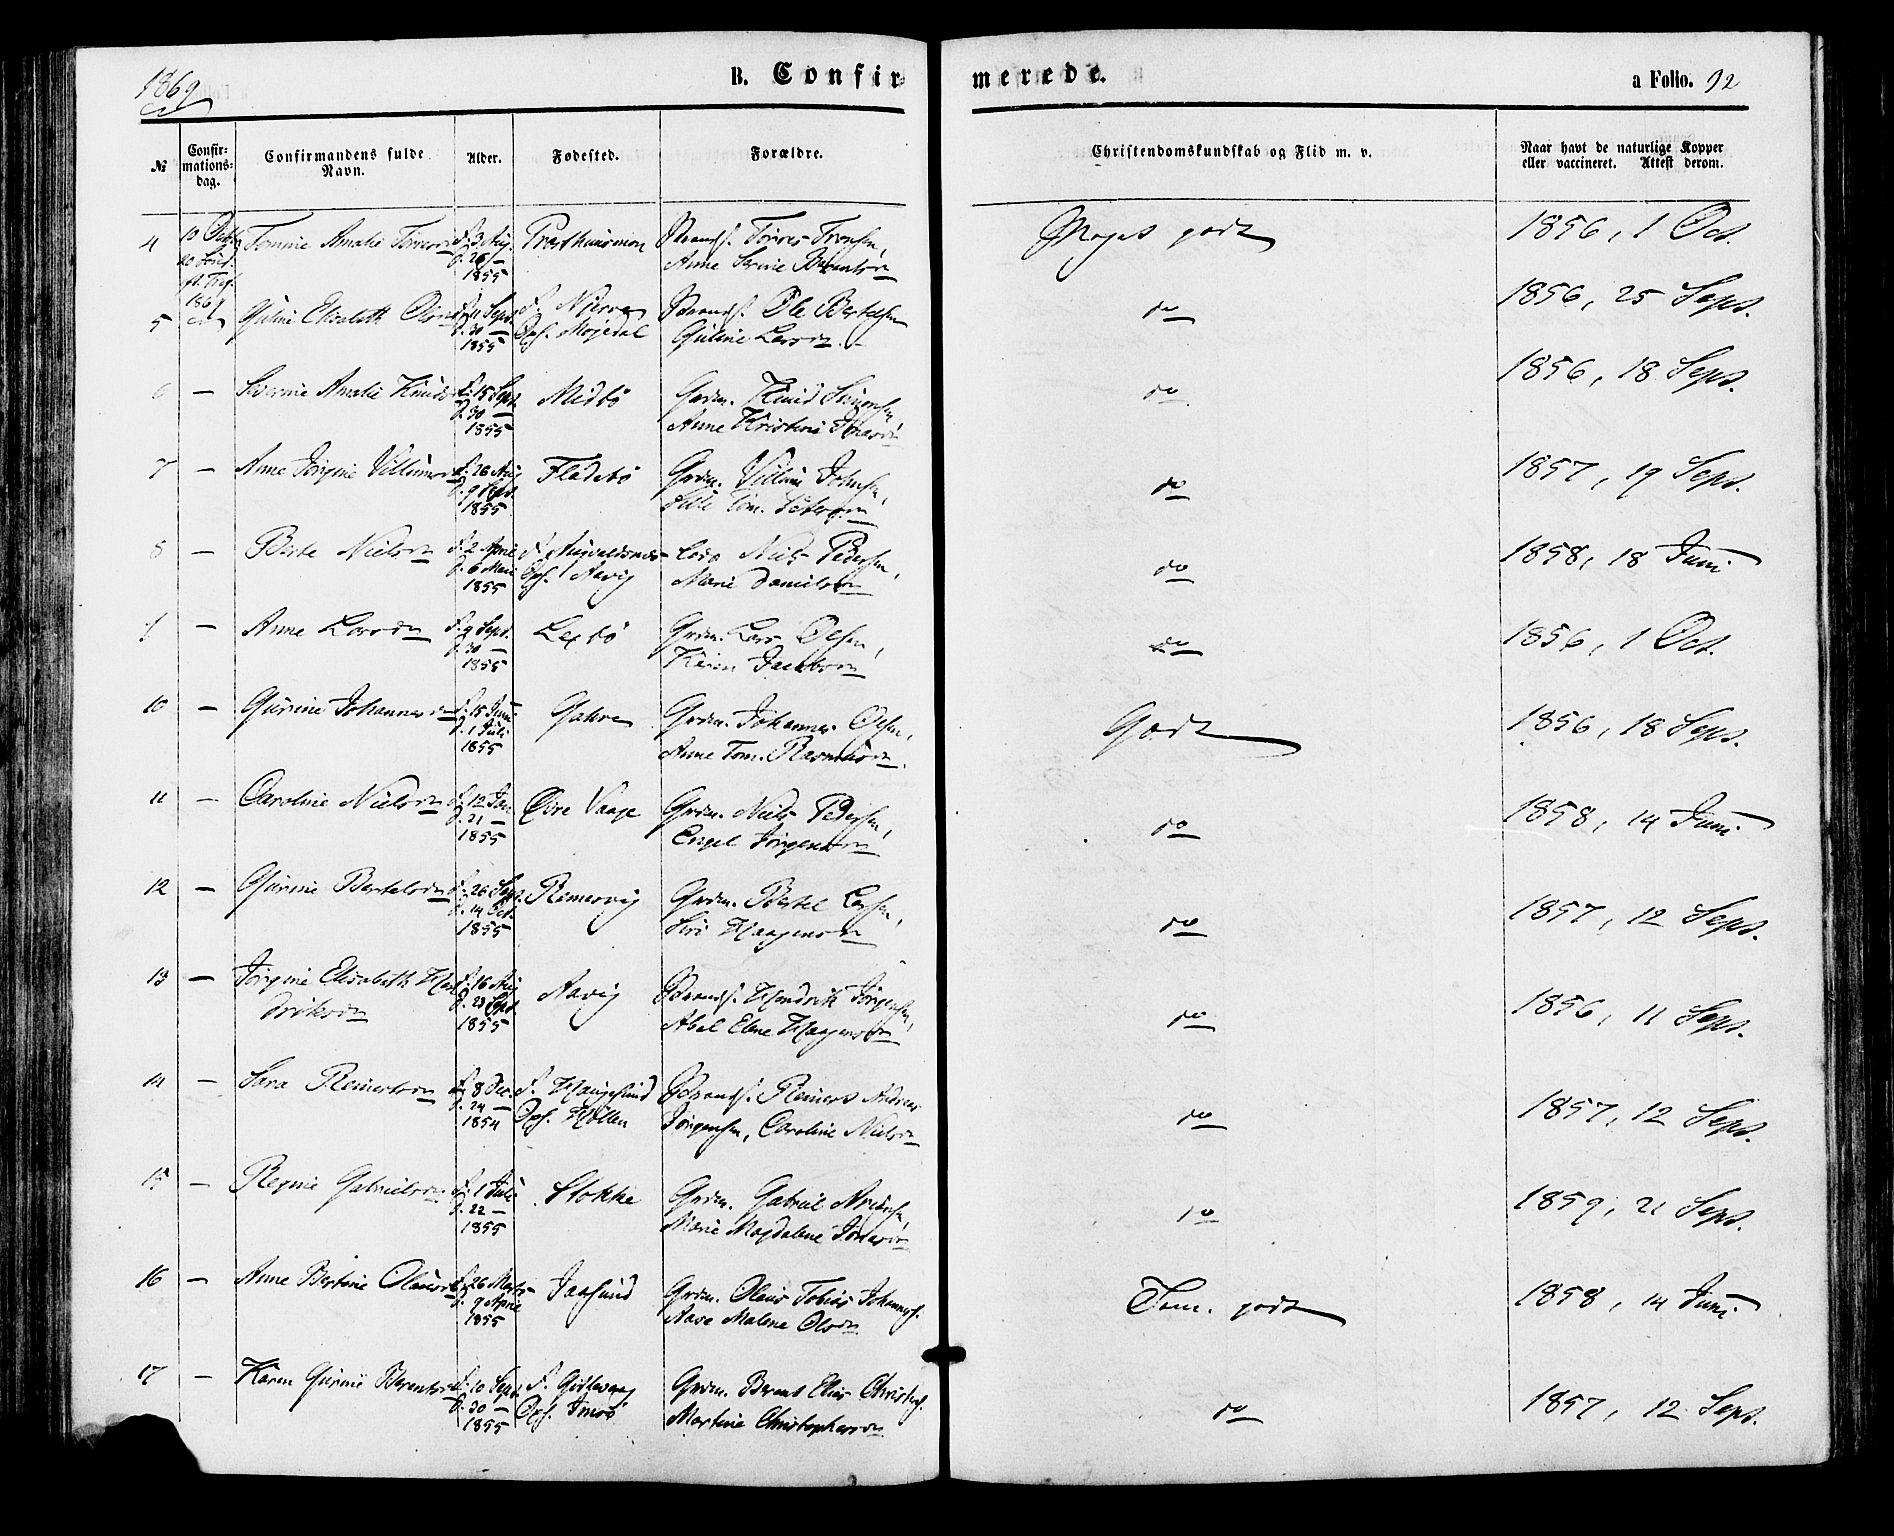 1869
B. Confir-
merede.
a Folio. 92
№
Confir-
mations-
dag.
Confirmandens fulde
Navn.
Alder.
Fødested.
Forældre.
Christendomskundskab og Flid m. v.
Naar havt de naturlige Kopper
eller vaccineret. Attest derom.
4
10 Octb.
1869
Tomine Amalie
f. 3 Aug.
d. 26 –
1855
Præsthuusmoen
Strands. Torres Tronsen,
Anne Serine Berentsdn
Meget godt
1856, 1 Oct.
5
Guline Elisabeth Olsdn
f. 11 Sept.
d. 30 –
1855
Oph. Mejedal
Strands. Ole Bertelsen
Guline Larsdn
do
1856, 25 Sept.
6 –
Severine Amalie Knudsdn
f. 15 Sept.
d. 30 –
1855
Midbø
Grdm. Knud Simonsen,
Anne Kristine Jonasdn
do
1856, 18 Sept.
7 –
Anne Jørgine Villumsdn
f. 26 Aug
d. 9 Sept.
1855
Fladebø
Grdm. Villum Johnsen,
do
1857, 19 Sept.
8 –
Berte Nielsdn
f. 2 April
d. 6 Mai
1855
f. Augvaldsnæs
Oph. Aavig
Niels Pedersen,
Marie Danielsdn
do
1858, 18 Juni
9 –
Anne Larsdn
f. 9 Sept.
d. 30 –
1855
Lexbø
Grdm. Lars Olsen,
Karen Jacobsdn
do
1856, 1 Oct.
10 –
Gurine Johannesdn
f. 15 Juni
d. 1 Juli
1855
Grdm. Johannes Olsen,
Anne Tom. Rasmusdn
Godt
1856, 18 Sept.
11 –
Caroline Nielsdn
f. 12 Jan
d. 21 –
1855
Øvre Vaage
Grdm. Niels Pedersen,
Engel Jørgensdn
do
1858, 14 Juni
12 –
Gurine Bertelsdn
f. 26 Sept.
d. 14 Oct.
1855
Remervig
Grdm. Bertel Larsen,
Siri Haagensdn
do
1857, 12 Sept.
13 –
Jørgine Elisabeth Hen
driksdn
f. 16 Aug
d. 23 Sept.
1855
Aavig
Strands. Hendrik Jørgensen,
Abel Elene Haagensdn
do
1856, 11 Sept.
14 –
Sara Reinertsdn
f. 8 Dec.
d. 24 –
1854
f. Haugesund
Oph. Hollen
Strands. Reinert Andreas
Jørgensen, Caroline Nielsdn
do
1857, 12 Sept.
15 –
Regine Gabrielsdn
f. 1 Juli
d. 22 –
1855
Stokke
Grdm. Gabriel
Marie Magdalene Jonasdn
do
1859, 21 Sept.
16 –
Anne Bertine Olausdn
f. 26 Marts
d. 9 April
1855
Jaasund
Grdm. Olaus Tobias Johanness.
Aase Malene Olsdn
Tem. godt
1858, 14 Juni
17 –
Karen Gurine Berentsdn
f. 10 Sept.
d. 30 –
1855
Grdm. Berent Elias Christophs.
Martine Christophersdn
do
1857, 12 Sept.